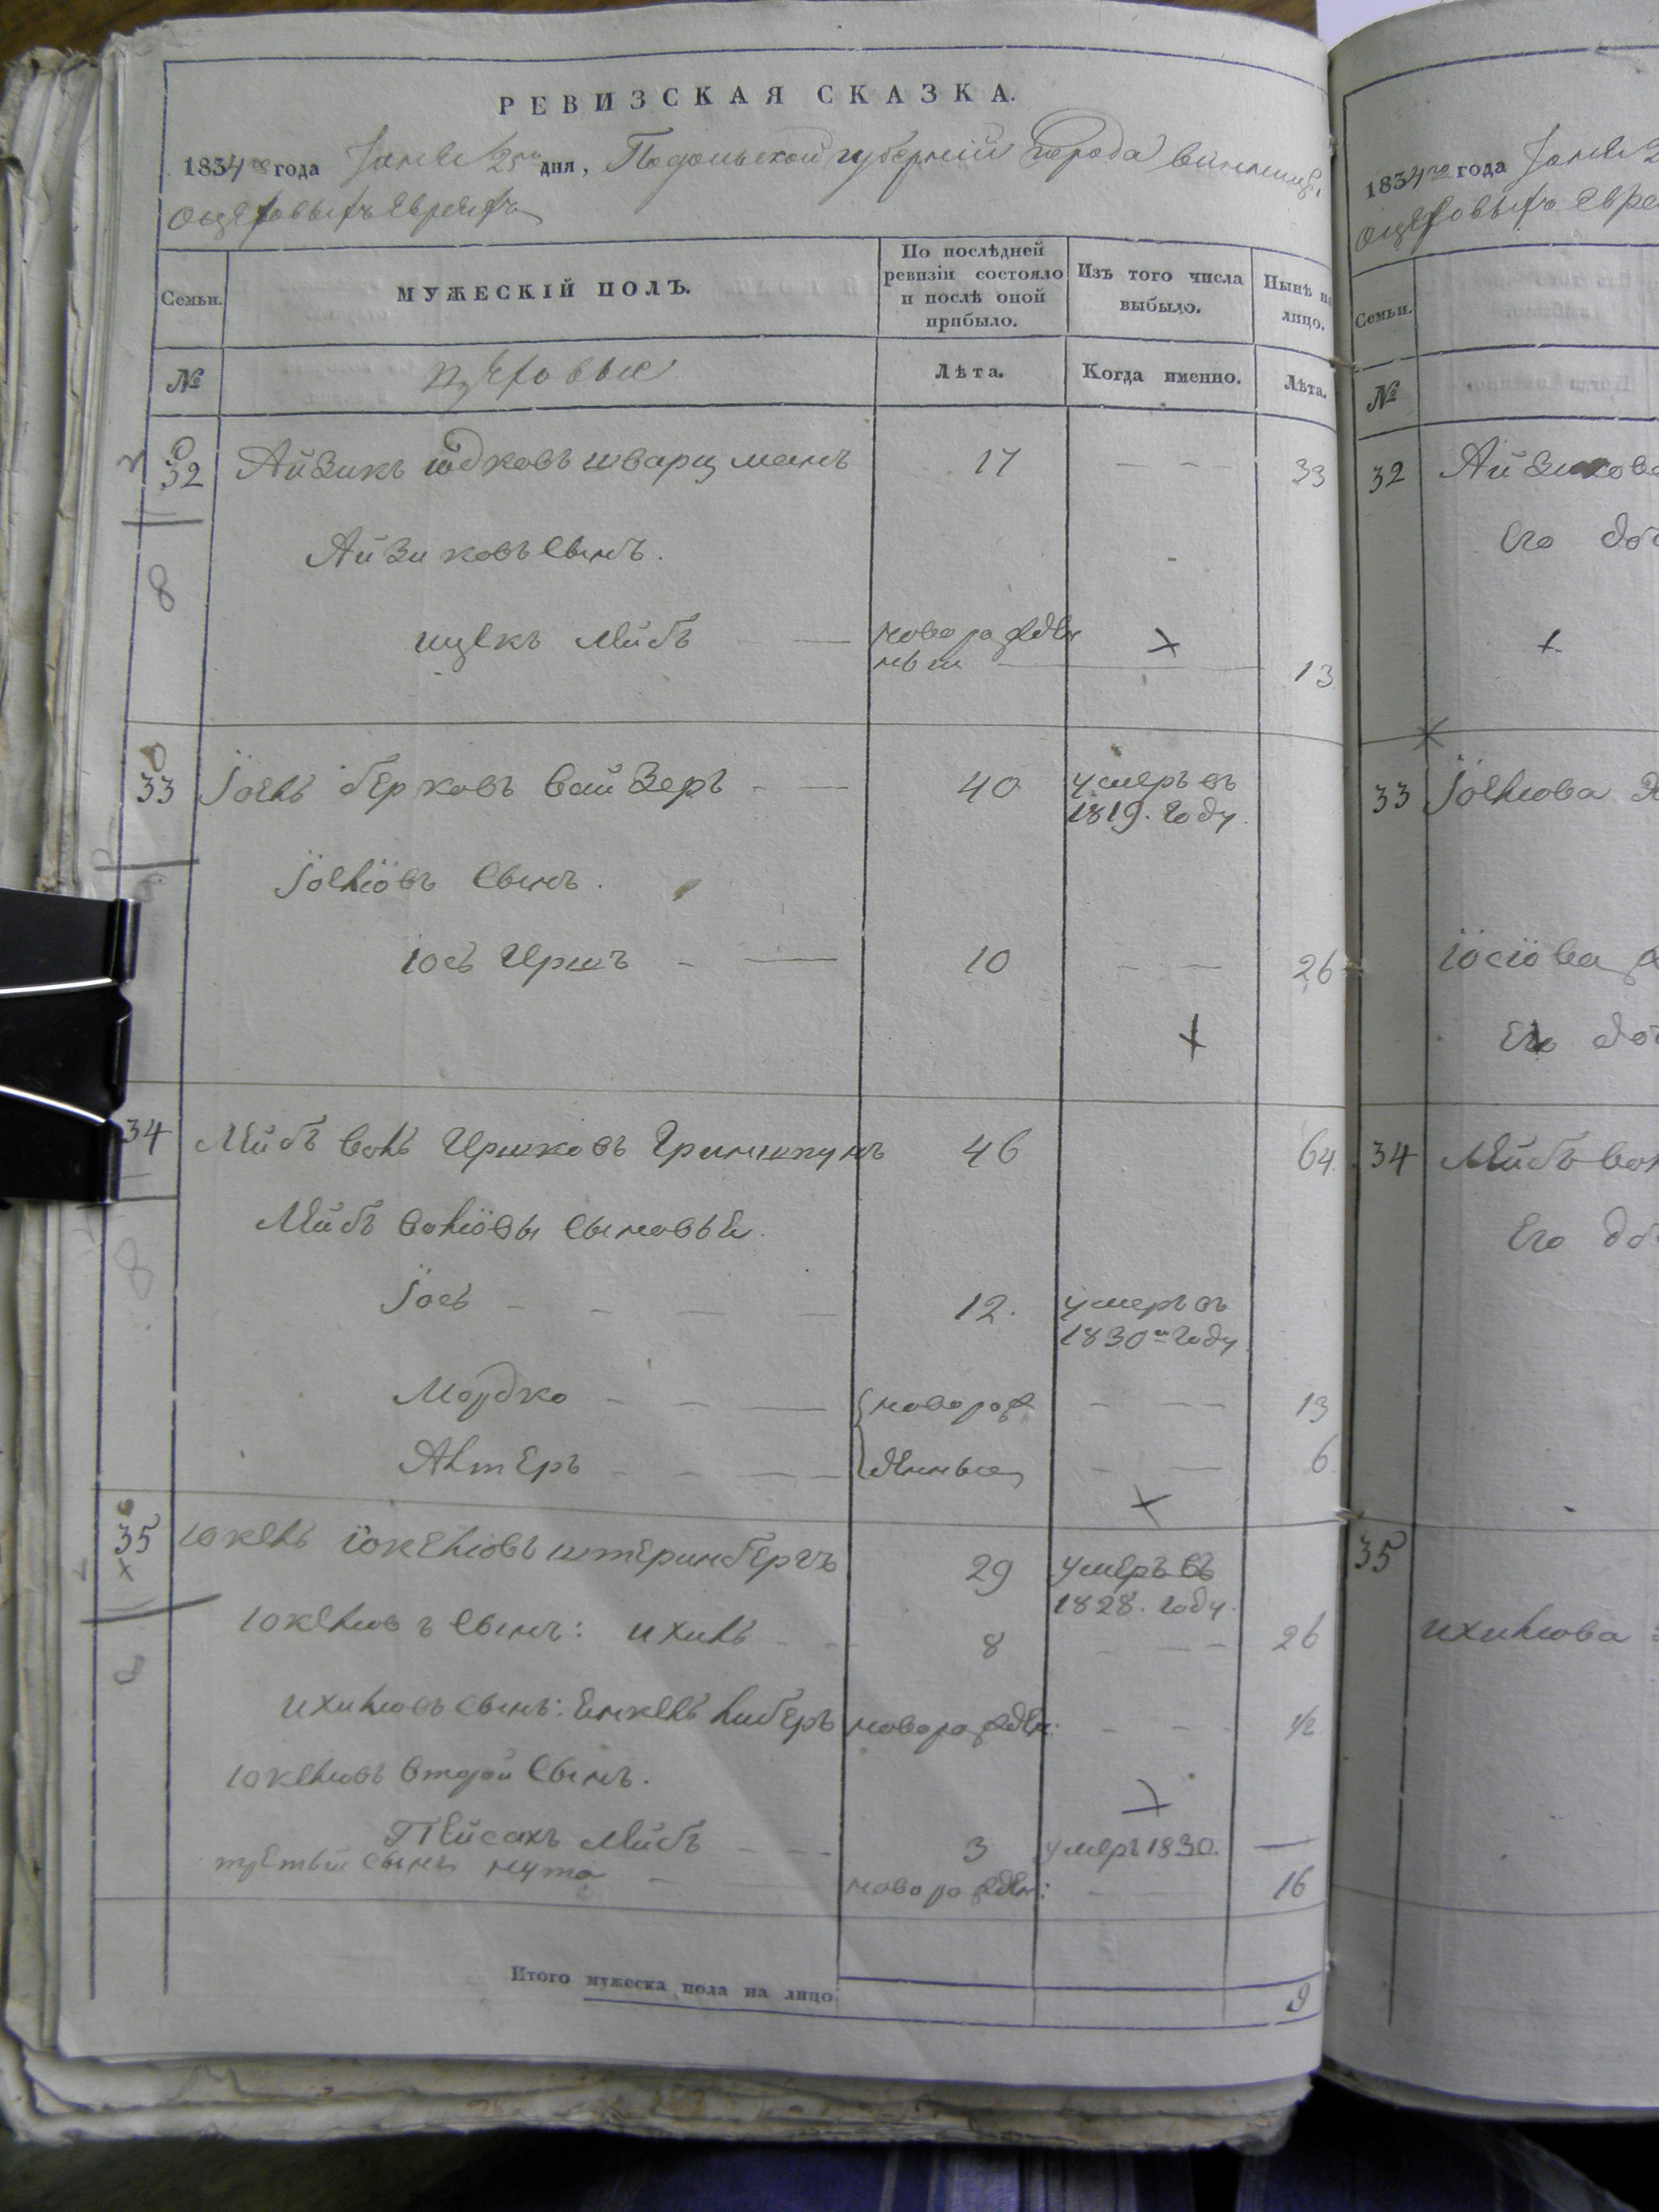 РЕВИЗСКАЯ СКАЗКА.
1834го года Іюня 25го дня, Подольской губерніи города Винницы
о цеховыхъ евреяхъ
Семьи.
МУЖЕСКІЙ ПОЛЪ.
По послѣдней ревизіи состояло и послѣ оной прибыло.
Изъ того числа выбыло.
Нынѣ на лицо.
№
цеховые
Лѣта.
Когда именно.
Лѣта.
32 Айзикъ Юдковъ Шварцманъ 17 — — 33
Айзиковъ сынъ.
8
Ицекъ Лейбъ — новорожден
ный — 13
33 Іоель Берковъ Вайзеръ — 40 умеръ въ
1819. году.
Іоеліовъ сынъ.
Іось Иршъ — 10 — — 26
34 Лейбъ Воль Иршковъ Гриншпунъ 46 64.
Лейбъ Воліовы сыновьи.
8
Іось — — — — 12. умеръ въ
1830м году.
Мордко — — — новорож — — — 13
Алтеръ — — — — денные — — 6
35 Юкель Іокеліовъ Штеринбергъ 29 умеръ въ
1828. году.
Юкеліовъ сынъ: Ихиль — — 8 — — — 26
Ихиліовъ сынъ: Енкель Либеръ новорожден: — — — 1/2
Юкеліовъ второй сынъ.
Пейсахъ Лейбъ — — — 3 умеръ 1830. —
третьи сынъ Нута — новорожден: — — 16
Итого мужеска пола на лицо 9
1834го года Іюня 2
о цеховыхъ евре
Семьи.
№
32 Айзикова
Его доч
33 Іоеліова
Іосіова
Его доч
34 Лейбъ Вол
Его доч
35
Ихиліова